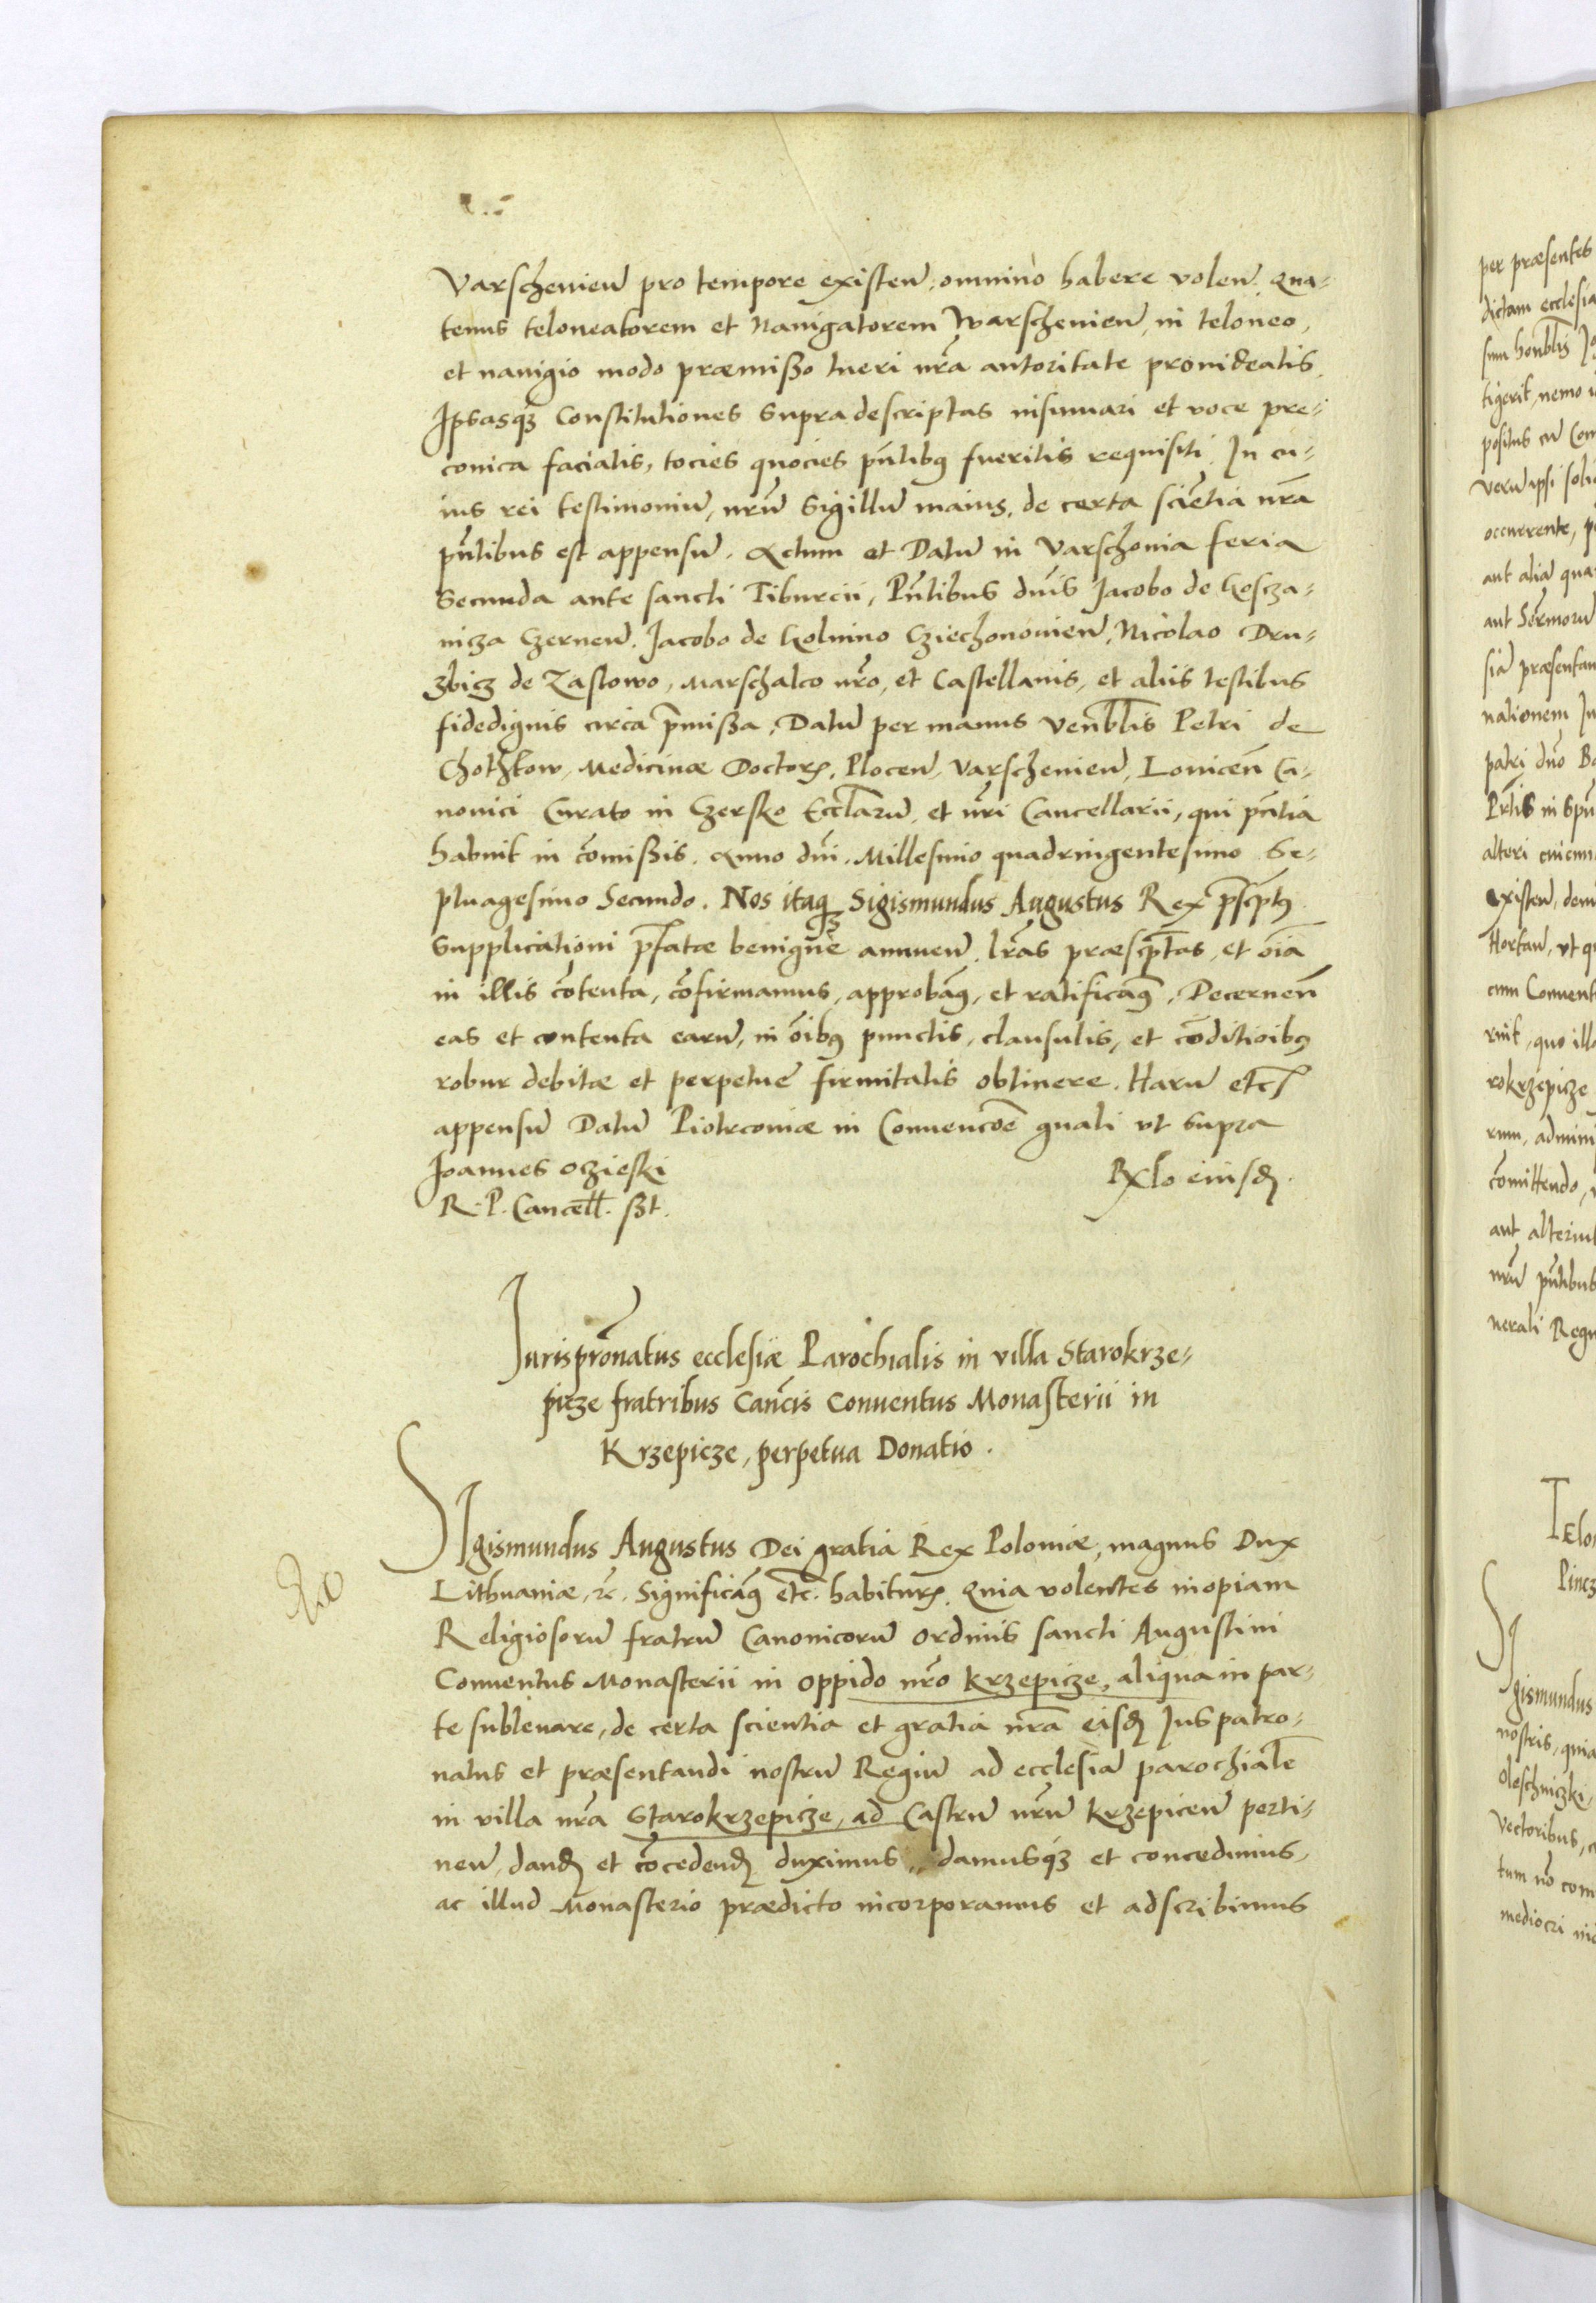 Varschevien̄ pro tempore existen̄, omnino habere volen̄. Qua-
tenus teloneatorem et Navigatorem Warschevien̄, in teloneo,
et navigio modo præmisso tueri nr̄a autoritate provideatis.
Ipsasq₃ Constitutiones supradescriptas insinuari et voce pre-
conica faciatis, tocies quocies pn̄tibus fueritis requisiti. In cu-
ius rei testimoniū, nrū Sigillū maius, de certa sciētia nr̄a
pn̄tibus est appensū. Actum et Datū in Varschovia feria
Secunda ante sancti Tiburcii, Pn̄tibus dn̄is Jacobo de Koscza-
nicza Czernen̄. Jacobo de Kolnino Cziechonovien̄, Nicolao Dru-
zbicz de Zastowo, Marschalco nr̄o, et Castellanis, et aliis testibus
fidedignis circa p̄missa, Datū per manus Venb̄lis Petri de
Chothkow, Medicinæ Doctoris, Plocen̄, Varschevien̄, Lovicen̄ Ca-
nonici Curato in Czersko Eccl̄arū, et nr̄i Cancellarii, qui pn̄tia
habuit in cōmissis. Anno dn̄i. Millesimo quadringentesimo Se-
ptuagesimo Secundo. Nos itaq₃ Sigismundus Augustus Rex p̄scp̄tus
supplicationi p̄fatæ benigne annuen̄, lr̄as præscp̄tas, et oīa
in illis cōtenta, cōfirmamus, approbām⁹, et ratificām⁹, Decernen̄
eas et contenta earū, in oībus punctis, clausulis, et cōditioībus
robur debitæ et perpetuę firmitatis obtinere. Harū etc̄
appensū Datū Piotrcoviæ in Convencōe gn̄ali ut supra
Joannes Oczieski
R. P. Cancell. sst.
Rx̄lo eiusd̄.
Jurisprōnatus ecclesiæ Parochialis in villa Starokrze-
picze fratribus Canc̄is Conventus Monasterii in
Krzepicze, perpetua Donatio.
SIgismundus Augustus Dei gratia Rex Poloniæ, magnus Dux
Lithuaniæ, &c. Significām⁹ etc. habituris. Quia volentes inopiam
Religiosorū fratrū Canonicorū ordinis sancti Augustini
Conventus Monasterii in oppido nr̄o Krzepicze, aliqua in par-
te sublevare, de certa scientia et gratia nr̄a eisd̄ Jus patro-
natus et præsentandi nostrū Regiū ad ecclesiā parochialē
in villa nr̄a Starokrzepicze, ad Castrū nrū Krzepicen̄ perti-
nen̄, dand̄ et cōcedend̄ duximus, damusq₃ et concedimus,
ac illud Monasterio prædicto incorporamus et adscribimus
per præsentes
dictam ecclesia
sum honb̄lis Jo
tigerit, nemo
positus cū Con
verū ipsi soli
occurrente, p
aut aliā qua
aut Sermonū
siā præsentan
nationem In
patri dn̄o Ba
alteri cuicun
existen̄, dem
Hortan̄, ut q
cum Convent
rokrzepicze
rum, admini
cōmittendo,
aut alteriu
nrū pn̄tibus
nerali Regn
Telon
Pincz
SIgismundus
nostris, quia
Oleschniczki,
Vectoribus,
tum nō com
mediocri